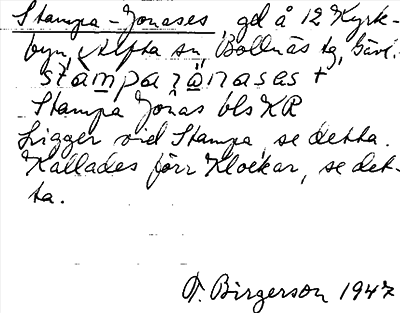 Stampa-Jonases, gd å 12 Kyrk-
byn, Alfta sn, Bollnäs tg, Gävl.
stàmpaɹänases +
Stampa Jonas bls KR
Ligger vid Stampa, se detta.
Kallades förr Klockar, se det-
ta.
T. Birgerson 1947